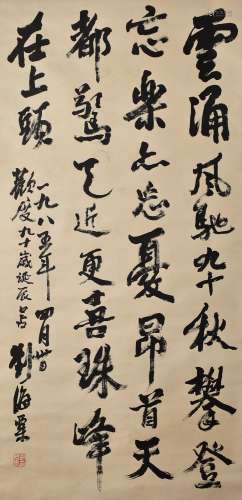 雲涌風馳九十秋攀登
忘樂亦忘憂昂首天
都驚天近更喜珠峰
在上頭
一九八五年四月
歡度九十歲誕辰 劉海粟